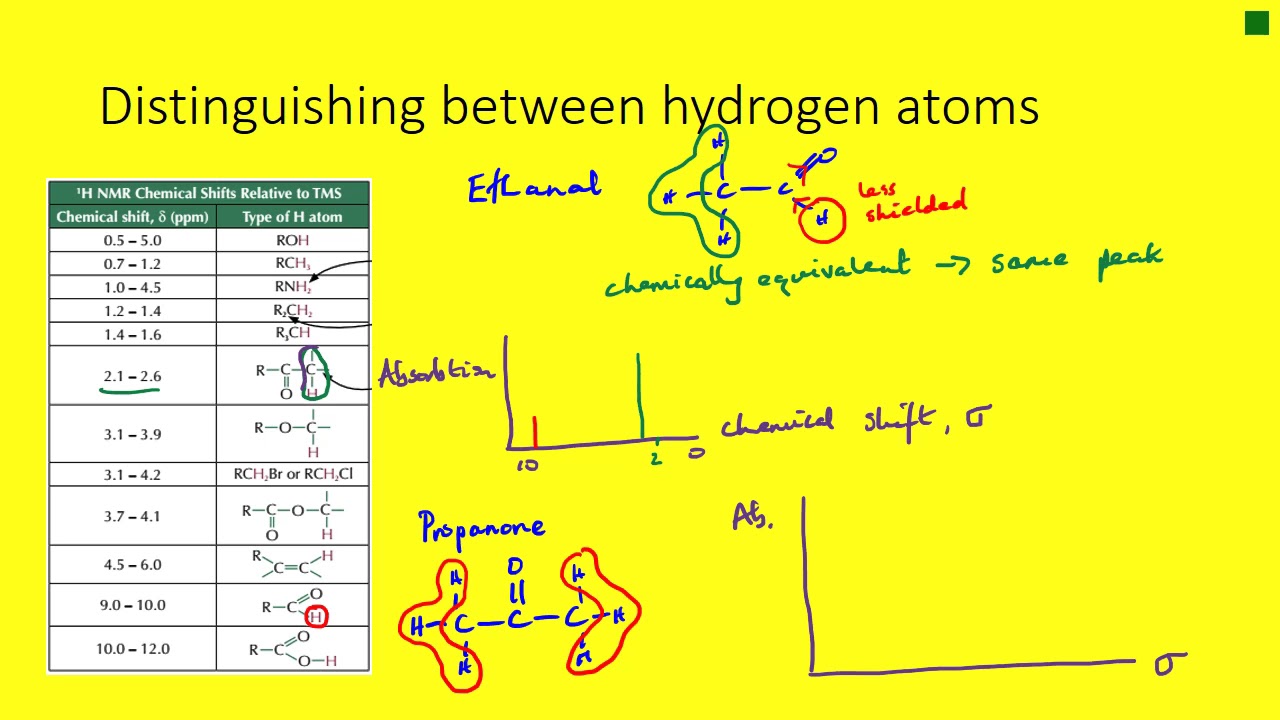 Distinguishing between hydrogen atoms
¹H NMR Chemical Shifts Relative to TMS
Chemical shift, δ (ppm) Type of H atom
0.5 – 5.0 ROH
0.7 – 1.2 RCH₃
1.0 – 4.5 RNH₂
1.2 – 1.4 R₂CH₂
1.4 – 1.6 R₃CH
2.1 – 2.6 R–C–C– O H
3.1 – 3.9 R–O–C– H
3.1 – 4.2 RCH₂Br or RCH₂Cl
3.7 – 4.1 R–C–O–C– O H
4.5 – 6.0 R C=C H
9.0 – 10.0 R–C O H
10.0 – 12.0 R–C O O–H
Ethanal
H
H – C – C O
H H
less
shielded
chemically equivalent → same peak
Absorbtion
chemical shift, σ
10 2 0
Propanone
H O H
H – C – C – C – H
H H
Ab.
σ